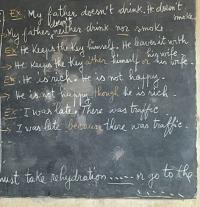 Ex: My father doesn't drink. He doesn't smoke
My father neither drink nor smoke.
Ex: He keeps the key himself. He leaves it with his wife.
→ He keeps the key either himself or his wife.
Ex: He is rich. He is not happy.
→ He is not happy though he is rich.
Ex: I was late. There was traffic
→ I was late because there was traffic.
must take rehydration ........ or go to the